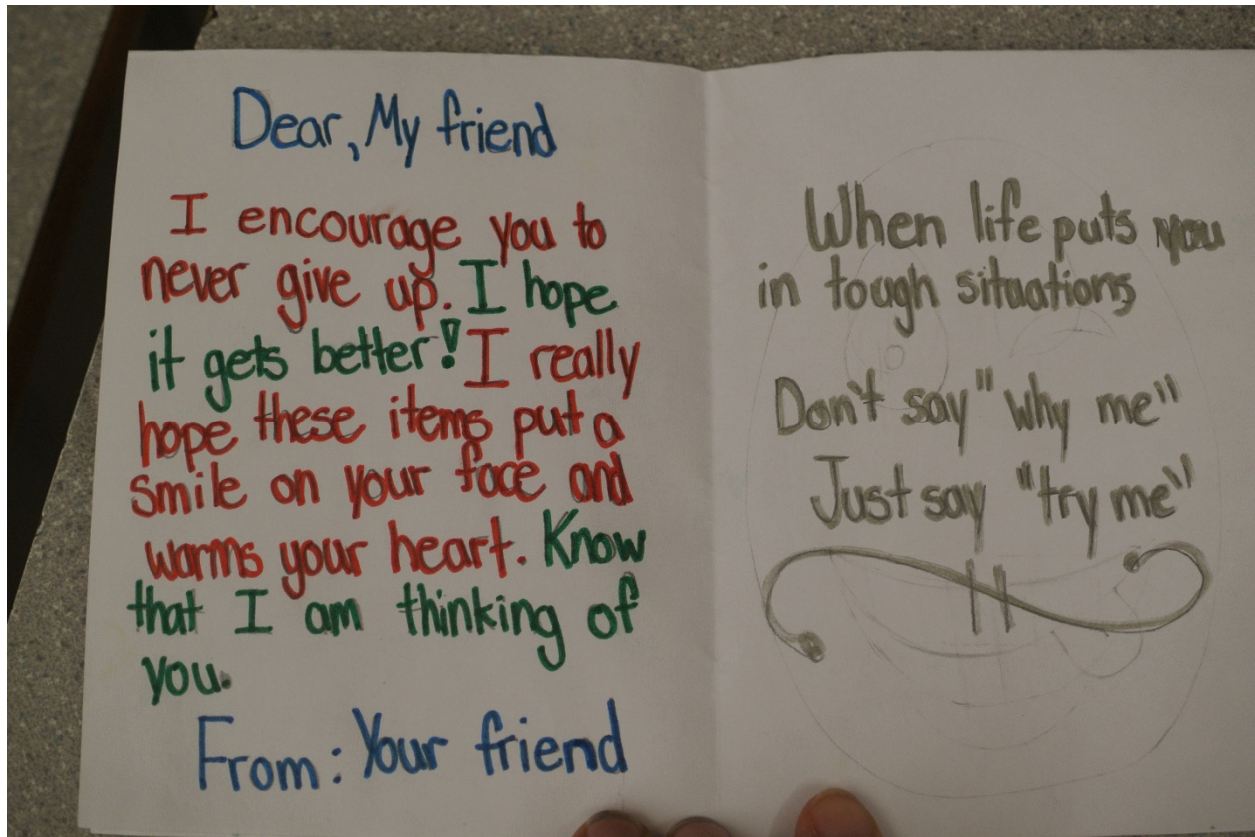 Dear, My friend
I encourage you to
never give up. I hope
it gets better! I really
hope these items put a
smile on your face and
warms your heart. Know
that I am thinking of
you.
From: Your friend
When life puts you
in tough situations
Don't say "why me"
Just say "try me"